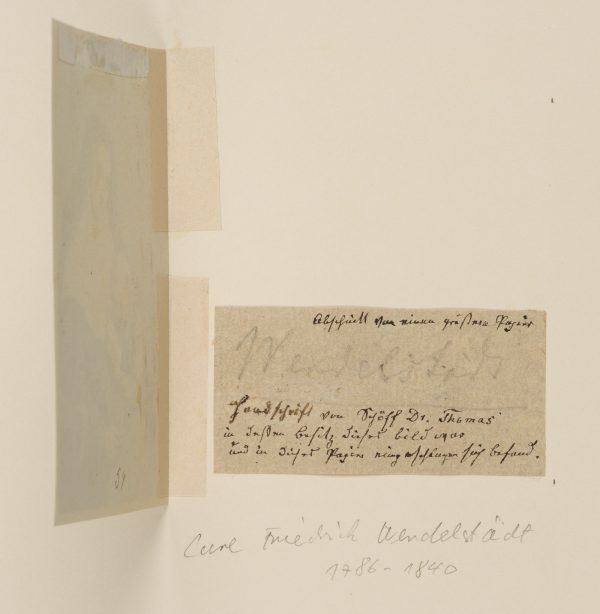 Abschnitt von einem größern Papier
Wendelstädt
Handschrift von Schöff Dr. Thomas
in deßen besitz dieses bild war
und in dieses Papier eingeschlagen sich befand.
31
Carl Friedrich Wendelstädt
1786-1840